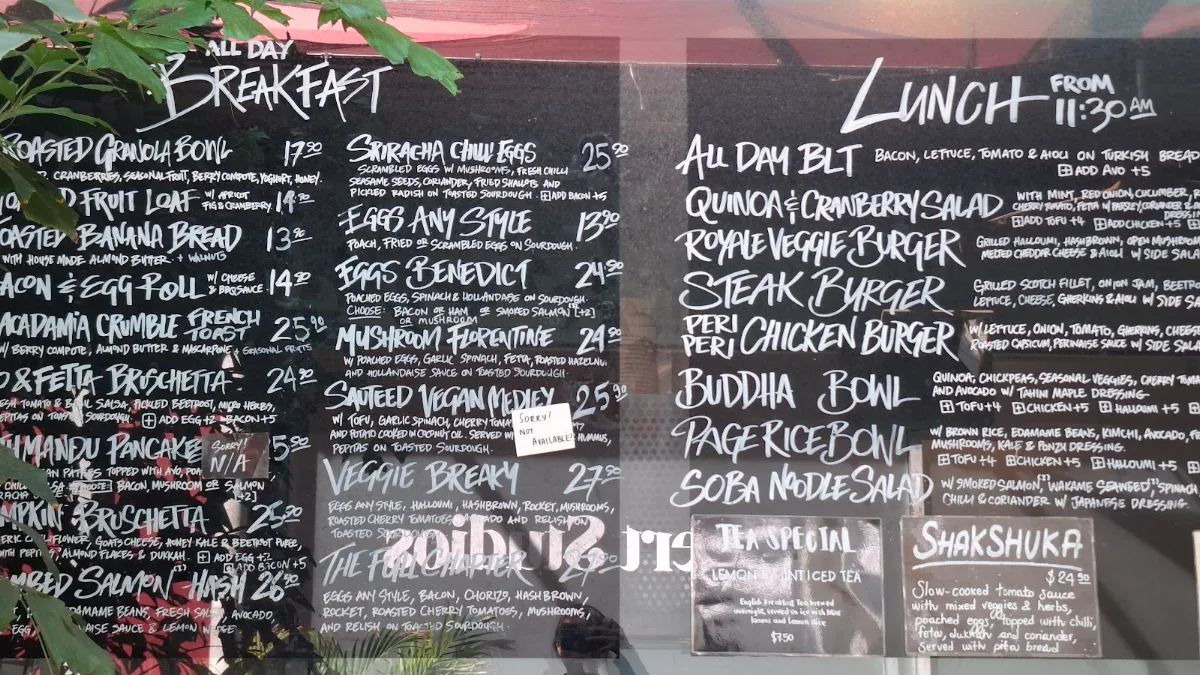 ALL DAY
BREAKFAST
ROASTED GRANOLA BOWL 17.90
CRANBERRIES, SEASONAL FRUIT, BERRY COMPOTE, YOGHURT, HONEY.
FRUIT LOAF W/ APRICOT FIG & CRANBERRY 14.90
BANANA BREAD 13.90
WITH HOUSE MADE ALMOND BUTTER + WALNUTS
& EGG ROLL W/ CHEESE & BBQ SAUCE 14.90
MACADAMIA CRUMBLE FRENCH TOAST 25.90
W/ BERRY COMPOTE, ALMOND BUTTER & MASCARPONE + SEASONAL FRUITS
& FETTA BRUSCHETTA 24.90
TOMATO & BASIL SALSA, PICKLED BEETROOT, MICRO HERBS,
PEPITAS ON TOAST SOURDOUGH. + ADD EGG +2 BACON +5
PANCAKE SORRY! N/A 5.90
TOPPED WITH AVO,
CHOOSE: BACON, MUSHROOM OR SALMON
[+2]
BRUSCHETTA 25.90
FLOWER, GOATS CHEESE, HONEY KALE & BEETROOT PUREE,
WITH PEPITAS, ALMOND FLAKES & DUKKAH. + ADD EGG +2
+ ADD BACON +5
SALMON HASH 26.90
EDAMAME BEANS, FRESH AVOCADO,
EGG, SAUCE & LEMON WEDGE
SRIRACHA CHILLI EGGS 25.90
SCRAMBLED EGGS W/ MUSHROOMS, FRESH CHILLI
SEASAME SEEDS, CORIANDER, FRIED SHALLOTS AND
PICKLED RADISH ON TOASTED SOURDOUGH. + ADD BACON +5
EGGS ANY STYLE 13.90
POACH, FRIED OR SCRAMBLED EGGS ON SOURDOUGH.
EGGS BENEDICT 24.90
POACHED EGGS, SPINACH & HOLLANDAISE ON SOURDOUGH.
CHOOSE: BACON OR HAM OR SMOKED SALMON [+2]
OR MUSHROOM
MUSHROOM FLORENTINE 24.90
W/ POACHED EGGS, GARLIC SPINACH, FETTA, ROASTED HAZELNUT
AND HOLLANDAISE SAUCE ON TOASTED SOURDOUGH.
SAUTEED VEGAN MEDLEY 25.90
W/ TOFU, GARLIC SPINACH, CHERRY
AND POTATO COOKED IN COCONUT OIL. SERVED W/ HUMMUS,
PEPITAS ON TOASTED SOURDOUGH.
SORRY!
NOT
AVAILABLE!
VEGGIE BREAKY 27.90
EGGS ANY STYLE, HALLOUMI, HASHBROWN, ROCKET, MUSHROOMS,
ROASTED CHERRY TOMATOES, AND RELISH ON
TOASTED SOURDOUGH.
THE FULL CHAPTER
EGGS ANY STYLE, BACON, CHORIZO, HASHBROWN,
ROCKET, ROASTED CHERRY TOMATOES, MUSHROOMS,
AND RELISH ON TOASTED SOURDOUGH.
Studios
LUNCH FROM 11:30 AM
ALL DAY BLT BACON, LETTUCE, TOMATO & AIOLI ON TURKISH BREAD
+ ADD AVO +5
QUINOA & CRANBERRY SALAD WITH MINT, RED ONION, CUCUMBER,
CHERRY TOMATO, FETTA W/ PARSLEY, CORIANDER &
+ ADD TOFU +4 + ADD CHICKEN +5
ROYALE VEGGIE BURGER GRILLED HALLOUMI, HASHBROWN, OPEN MUSHROOM
MELTED CHEDDAR CHEESE & AIOLI W/ SIDE
STEAK BURGER GRILLED SCOTCH FILLET, ONION JAM,
LETTUCE, CHEESE, GHERKINS & AIOLI W/ SIDE
PERI PERI CHICKEN BURGER W/ LETTUCE, ONION, TOMATO, GHERKINS,
ROASTED CAPSICUM, PERINAISE SAUCE W/ SIDE
BUDDHA BOWL QUINOA, CHICKPEAS, SEASONAL VEGGIES, CHERRY
AND AVOCADO W/ TAHINI MAPLE DRESSING
+ TOFU +4 + CHICKEN +5 + HALLOUMI +5
PAGE RICE BOWL W/ BROWN RICE, EDAMAME BEANS, KIMCHI, AVOCADO,
MUSHROOMS, KALE & PONZU DRESSING.
+ TOFU +4 + CHICKEN +5 + HALLOUMI +5
SOBA NOODLE SALAD W/ SMOKED SALMON, WAKAME SEAWEED, SPINACH
CHILLI & CORIANDER W/ JAPANESE DRESSING.
TEA SPECIAL
LEMON & MINT ICED TEA
English Breakfast Tea brewed
overnight, served on ice with Mint
leaves and lemon slice
$7.50
SHAKSHUKA
$24.90
Slow-cooked tomato sauce
with mixed veggies & herbs,
poached eggs, topped with chilli,
feta, dukkah and coriander,
served with pita bread